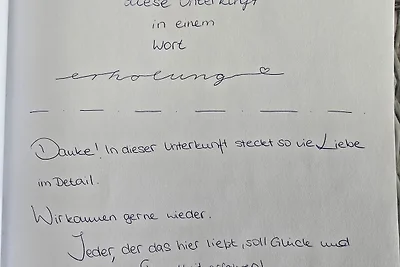 diese Unterkunft
in einem
Wort
erholung
Danke! In dieser Unterkunft steckt so vie Liebe
im Detail.
Wir kommen gerne wieder.
Jeder, der das hier liest, soll Glück und